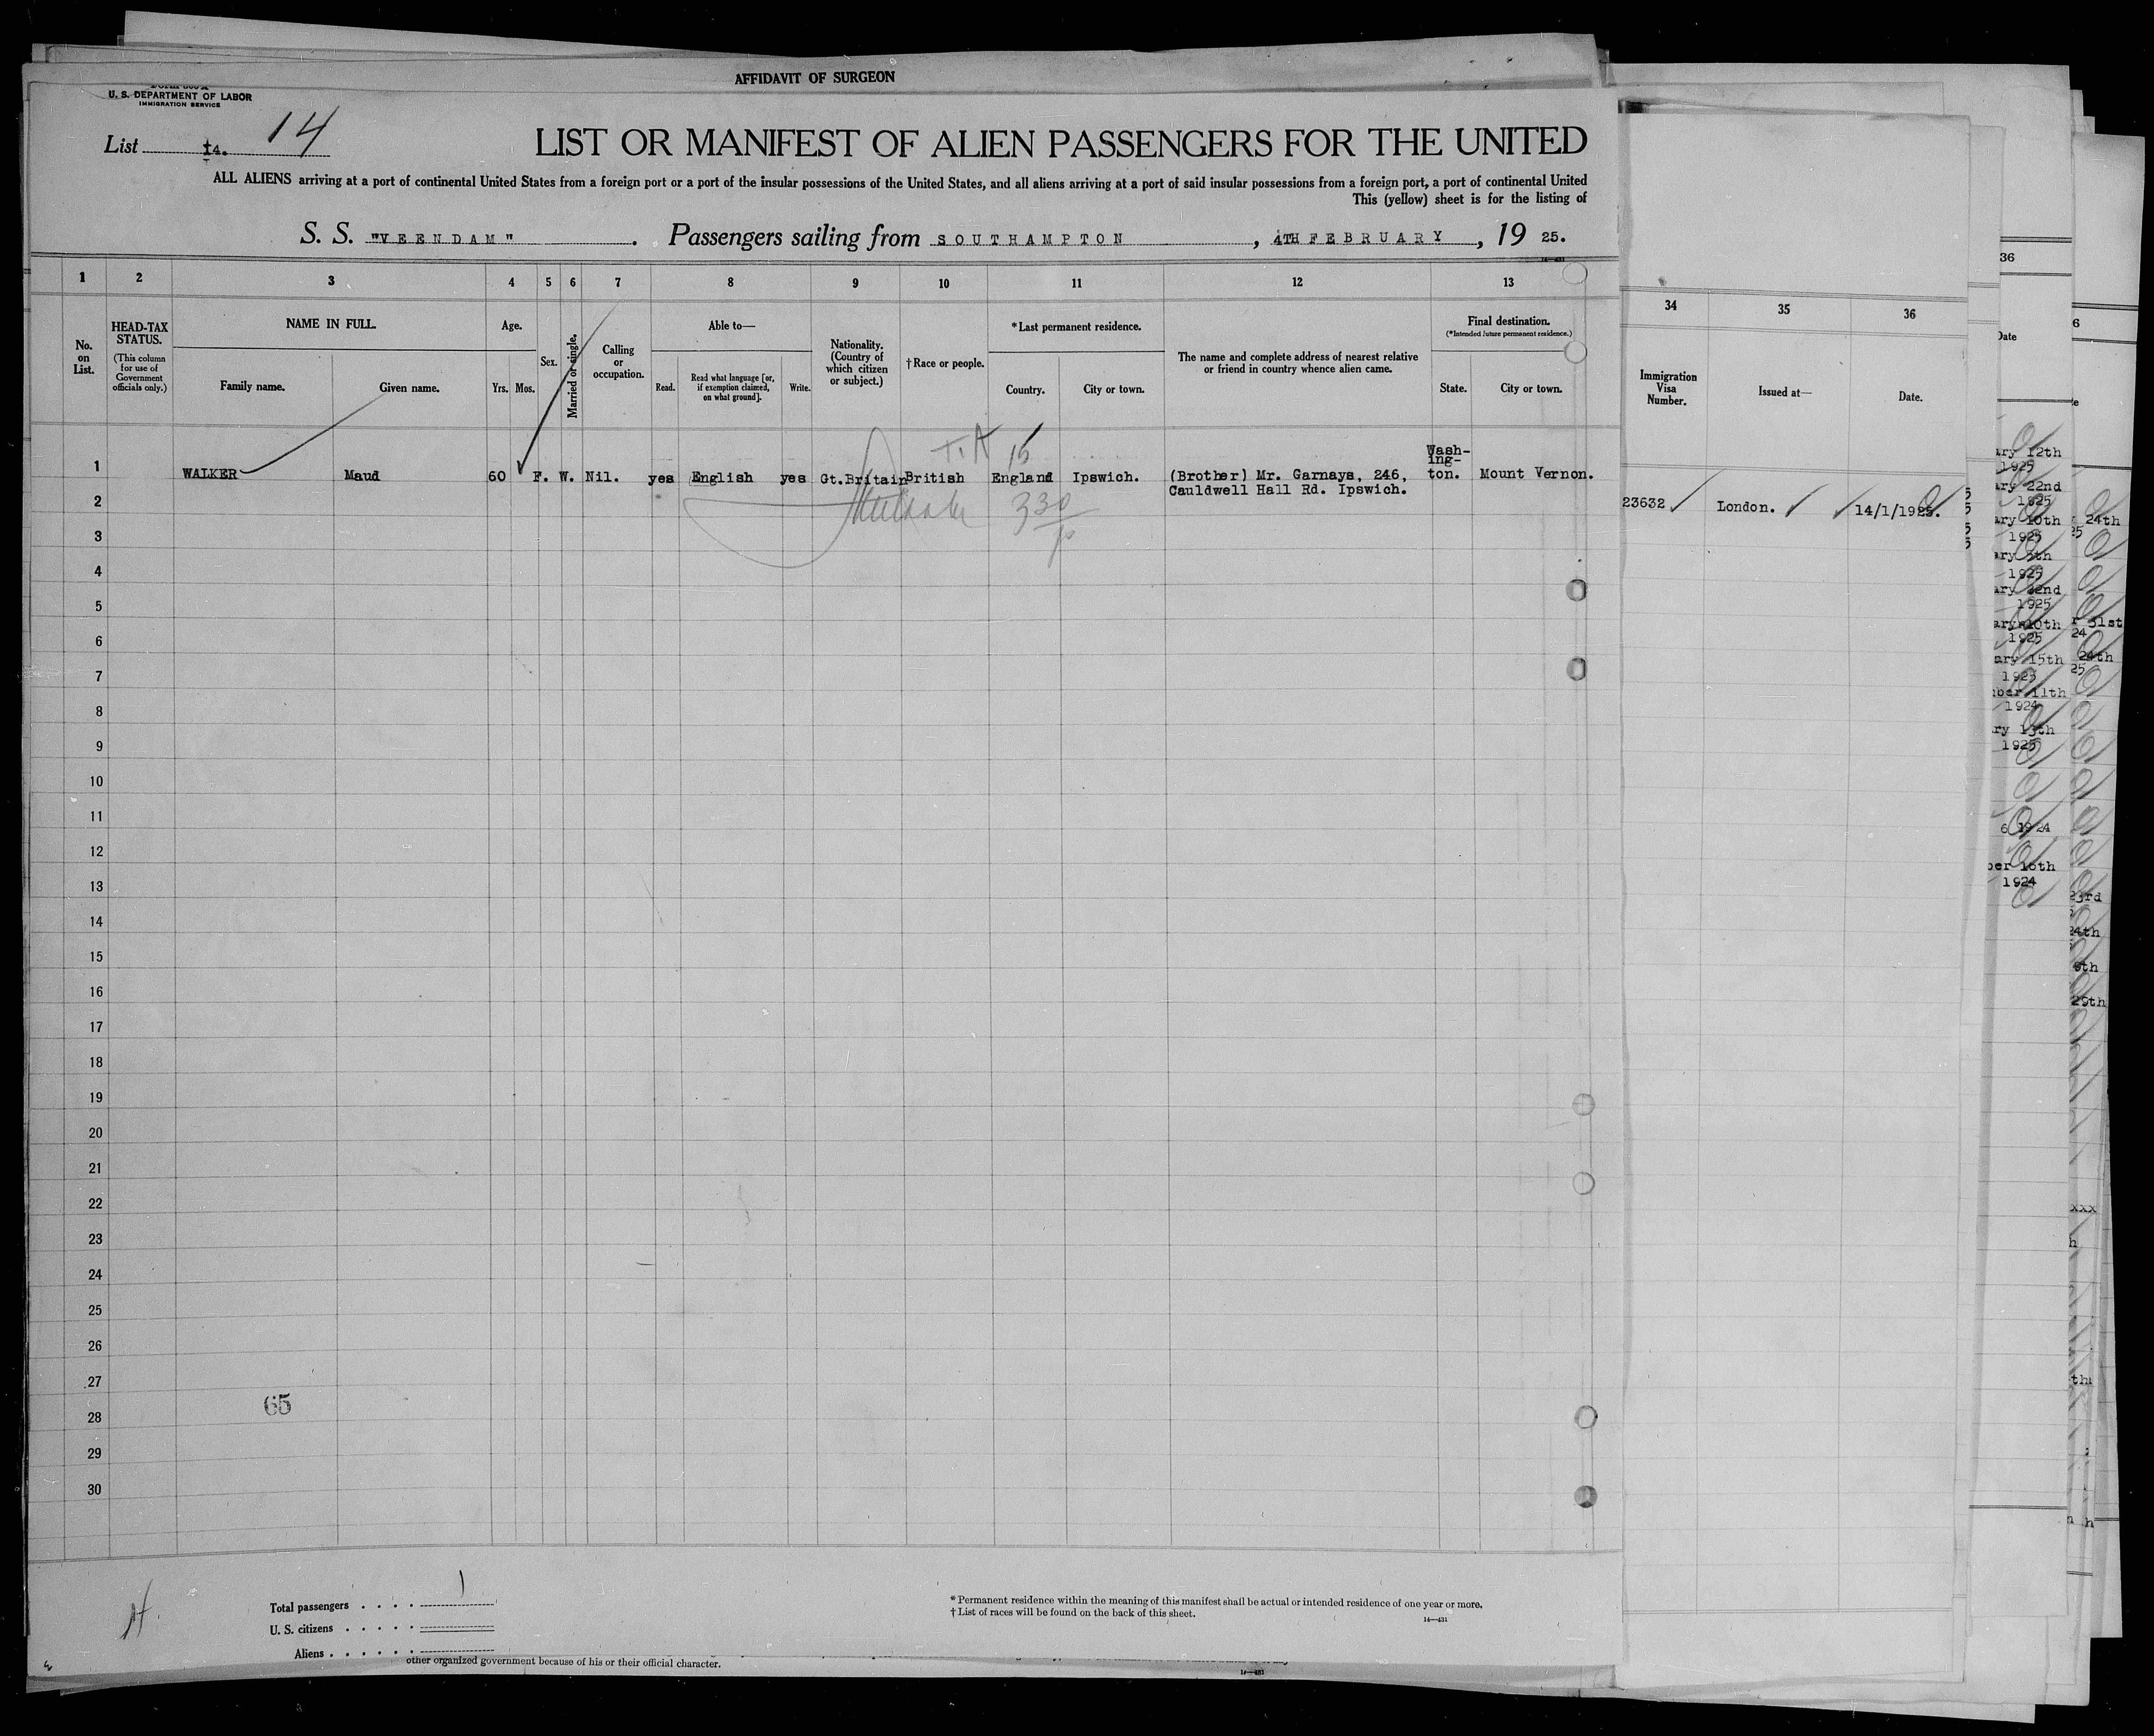 AFFIDAVIT OF SURGEON
U. S. DEPARTMENT OF LABOR
IMMIGRATION SERVICE
List 14. 14
LIST OR MANIFEST OF ALIEN PASSENGERS FOR THE UNITED
ALL ALIENS arriving at a port of continental United States from a foreign port or a port of the insular possessions of the United States, and all aliens arriving at a port of said insular possessions from a foreign port, a port of continental United
This (yellow) sheet is for the listing of
S. S. "VEENDAM" . Passengers sailing from SOUTHAMPTON , 4TH FEBRUARY , 19 25.
14—431
1 2 3 4 5 6 7 8 9 10 11 12 13
34 35 36
No. on List.
HEAD-TAX STATUS.
(This column for use of Government officials only.)
NAME IN FULL.
Family name. Given name.
Age.
Yrs. Mos.
Sex.
Married or single.
Calling or occupation.
Able to—
Read. Read what language [or, if exemption claimed, on what ground]. Write.
Nationality. (Country of which citizen or subject.)
†Race or people.
*Last permanent residence.
Country. City or town.
The name and complete address of nearest relative or friend in country whence alien came.
Final destination.
(*Intended future permanent residence.)
State. City or town.
Immigration Visa Number.
Issued at—
Date.
T.A 15
1 WALKER Maud 60 F. W. Nil. yes English yes Gt.Britain British England Ipswich. (Brother) Mr. Garnays, 246, Wash-ing-ton. Mount Vernon.
Cauldwell Hall Rd. Ipswich.
23632 London. 14/1/1925.
330
2
3
4
5
6
7
8
9
10
11
12
13
14
15
16
17
18
19
20
21
22
23
24
25
26
27
65
28
29
30
Total passengers . . . . 1
U. S. citizens . . . . .
Aliens . . . . . .
* Permanent residence within the meaning of this manifest shall be actual or intended residence of one year or more.
† List of races will be found on the back of this sheet.
14—431
other organized government because of his or their official character.
14—431
36
Date
ary 12th
1925
ary 22nd
1925
ary 10th
1925
ary 5th
1925
ary 22nd
1925
ary 10th
1925
ary 15th
1925
ber 11th
1924
ry 13th
1925
6 1924
ber 16th
1924
6
24th
25
31st
24
24th
25
23rd
24th
29th
xxx
h
th